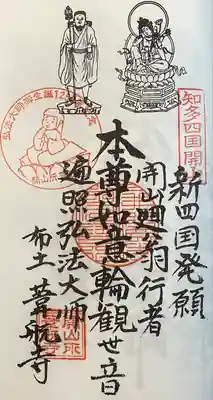 知多四国開山
新四国発願
開山廻翁行者
本尊如意輪観世音
遍照弘法大師
布土 葦航寺
弘法大師御生誕12
開山所
開山所